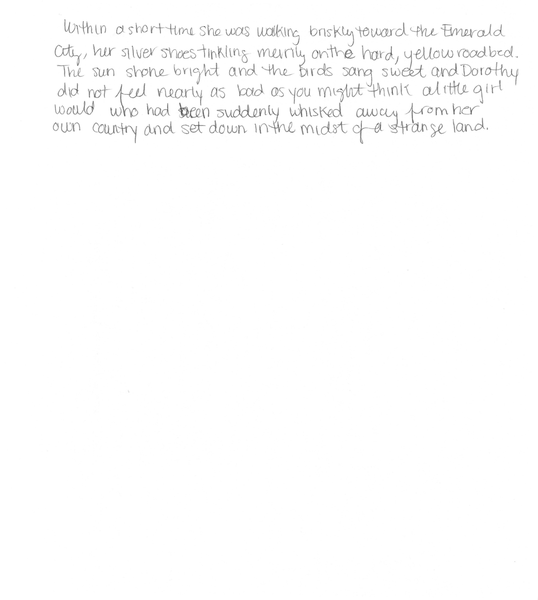 Within a short time she was walking briskly toward the Emerald
City, her silver shoes tinkling merrily on the hard, yellow roadbed.
The sun shone bright and the birds sang sweet and Dorothy
did not feel nearly as bad as you might think a little girl
would who had been suddenly whisked away from her
own country and set down in the midst of a strange land.